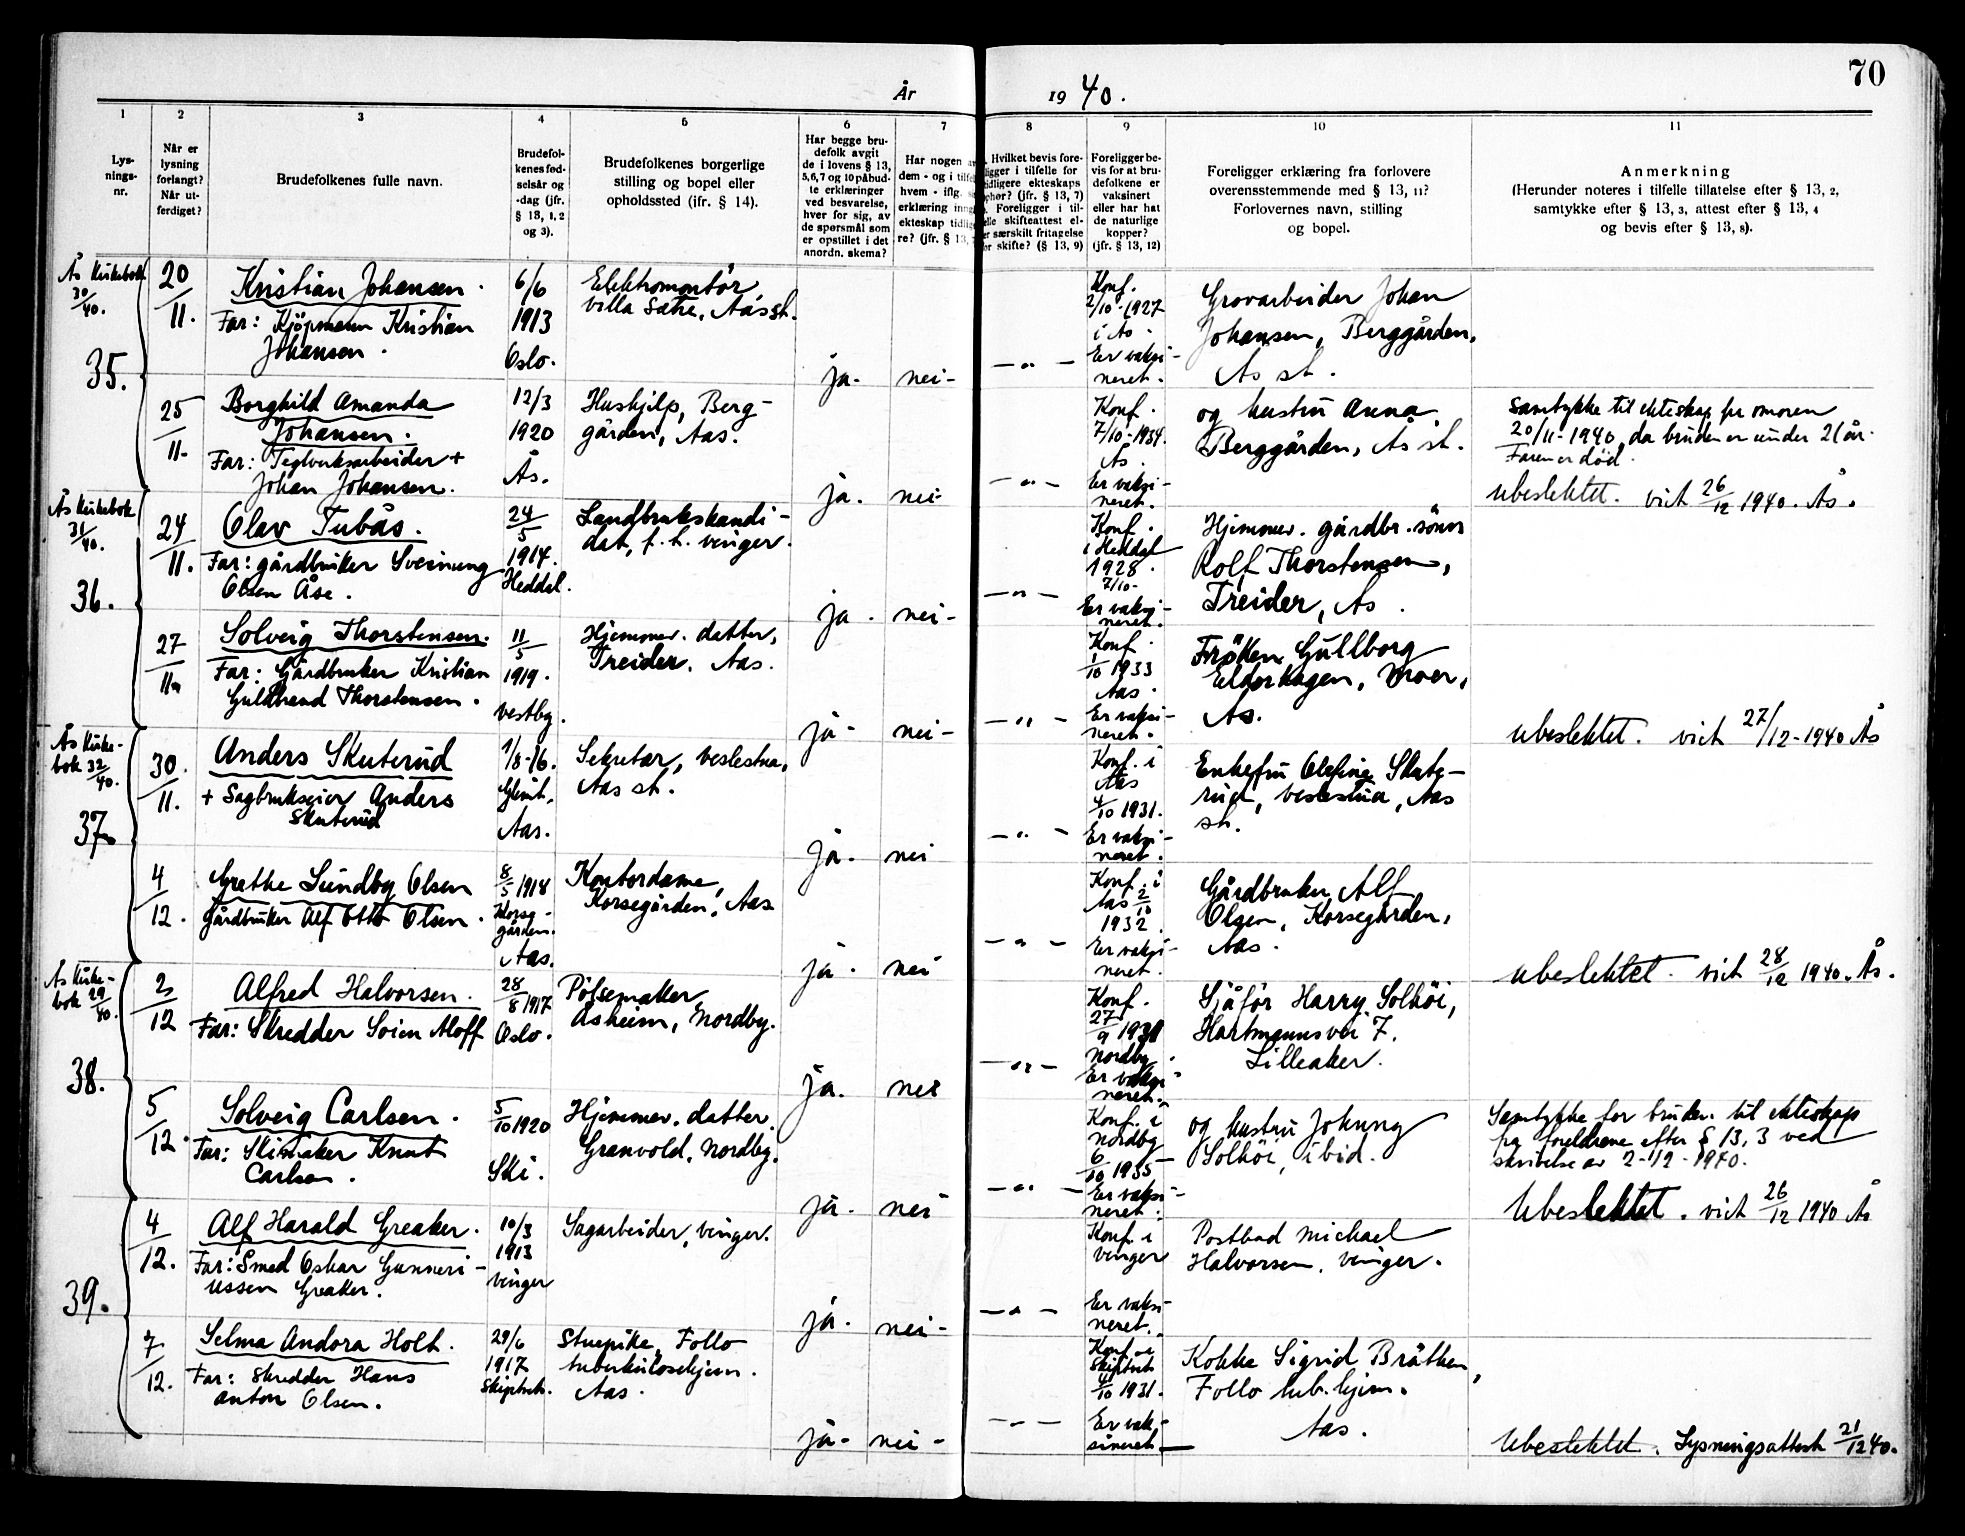 70
År 1940.
1 2 3 4 5 6 7 8 9 10 11
Lys-
nings-
nr.
Når er
lysning
forlangt?
Når ut-
ferdiget?
Brudefolkenes fulle navn.
Brudefol-
kenes fød-
selsår og
-dag (jfr.
§ 13, 1, 2
og 3).
Brudefolkenes borgerlige
stilling og bopel eller
opholdssted (ifr. § 14).
Har begge bru-
defolk avgit
de i lovens § 13,
5, 6, 7 og 10 påbud-
te erklæringer
ved besvarelse,
hver for sig, av
de spørsmål som
er opstillet i det
anordn. skema?
Har nogen av
dem - og i tilfe
hvem - iflg. s
erklæring inng
ekteskap tidlig
re? (jfr. § 13,
Hvilket bevis fore-
ligger i tilfelle for
tidligere ekteskaps
ophør? (jfr. § 13, 7)
Foreligger i til-
felle skifteattest el-
er særskilt fritagelse
for skifte? (§ 13, 9)
Foreligger be-
vis for at bru-
defolkene er
vaksinert
eller har hat
de naturlige
kopper?
(jfr. § 13, 12)
Foreligger erklæring fra forlovere
overensstemmende med § 13, 11?
Forlovernes navn, stilling
og bopel.
Anmerkning
(Herunder noteres i tilfelle tillatelse efter § 13, 2,
samtykke efter § 13, 3, attest efter § 13, 4
og bevis efter § 13, 8).
Ås Kirkebok
30/40.
35.
20/11.
Kristian Johansen.
Far: Kjøpmann Kristian
Johansen.
6/6
1913
Oslo.
Elektromontör
villa Sætre, Aas st.
ja-
nei-
-"-
Konf.
2/10-1927
i As.
Er vaksi-
neret.
Grovarbeider Johan
Johansen, Berggården,
As st.
25/11-
Borghild Amanda
Johansen.
Far: Teglverksarbeider +
Johan Johansen.
12/3
1920
Ås.
Hushjelp, Berg-
gården, Aas.
ja.
nei-
-"-
Konf.
7/10-1934.
As.
Er vaksi-
neret.
og hustru Anna
Berggården, Ås st.
Samtykke til ekteskap fra moren
20/11-1940, da bruden er under 21 år.
Faren er död.
Ubeslektet. viet 26/12 1940. Ås.
Ås Kirkebok
31/40.
36.
24/11.
Olav Tubås.
Far: gårdbruker Sveinung
Olsen Åse.
24/5
1914.
Heddal.
Landbrukskandi-
dat, f. t. vinger.
ja.
nei-
-"-
Konf.
i Heddal
1928.
7/10-
Er vaksi-
neret.
Hjemmev. gårdbr. sönn
Rolf Thorstensen,
Treider, As.
27/11
Solveig Thorstensen.
Far: Gårdbruker Kristian
Guldbrand Thorstensen.
11/5
1919.
Vestby.
Hjemmev. datter,
Treider, Aas.
ja-
nei-
-"-
Konf.
1/10 1933
Aas.
Er vaksi-
neret.
Fröken Gullborg
Eldor Hagen, Kroer,
As.
Ubeslektet. viet 27/12-1940 Ås
Ås Kirke-
bok 32/40.
37
30/11.
Anders Skuterud
+ Sagbrukseier Anders
Skuterud
1/8-16.
Aas.
Sekretær, Veslestua,
Aas st.
ja-
nei
-"-
Konf. i
Aas
4/10 1931.
Er vaksi-
neret.
Enkefru Olefine Skute-
rud, Veslestua, Aas
st.
4/12.
Grethe Lundby Olsen
Gårdbruker Alf Otto Olsen.
8/5 1918
Korse-
gården.
Aas.
Kontordame,
Korsegården, Aas
ja.
nei
-"-
Konf. i
Aas 2/10
1932
Er vaksi-
neret.
Gårdbruker Alf
Olsen, Korsegården,
Aas.
Ubeslektet. viet 28/12 1940. Ås.
As Kirke-
bok 29/40.
38.
2/12
Alfred Halvorsen.
Far: Skredder Aloff
28/8 1917
Oslo.
Pölsemaker,
Åsheim, Nordby.
ja.
nei
-"-
Konf.
27/9 1931
Nordby.
Er vaksi-
neret.
Sjåför Harry Solhöi,
Hartmannsvei 7.
Lilleaker.
5/12.
Solveig Carlsen.
Far: Skimaker Knut
Carlsen.
5/10 1920
Ski.
Hjemmev. datter.
Granvold, Nordby.
ja.
nei
-"-
Konf. i
Nordby
6/10 1935
Er vaksi-
neret.
og hustru Johung
Solhöi, ibid.
Samtykke for bruden til ekteskap
fra foreldrene efter § 13, 3 ved
skrivelse av 2-12-1940.
Ubeslektet. viet 26/12 1940 Ås
39.
4/12.
Alf Harald Greaker.
Far: Smed Oskar Gunneri-
ussen Greaker.
10/3
1913
Vinger
Sagarbeider, Vinger.
ja.
nei-
-"-
Konf. i
Vinger
Er vaksi-
neret.
Postbud Michael
Halvorsen, Vinger.
7/12.
Selma Andora Holt.
Far: Skredder Hans
Anton Olsen.
29/6
1917
Skiptvet.
Stuepike, Follo
tuberkulosehjem.
Aas.
ja-
nei-
-"-
Konf. i
Skiptvet
4/10 1931.
Er vak-
sineret
Kokke Sigrid Bråthen,
Follo tub. hjem.
Aas.
Ubeslektet. Lysningsattest 21/12 40.